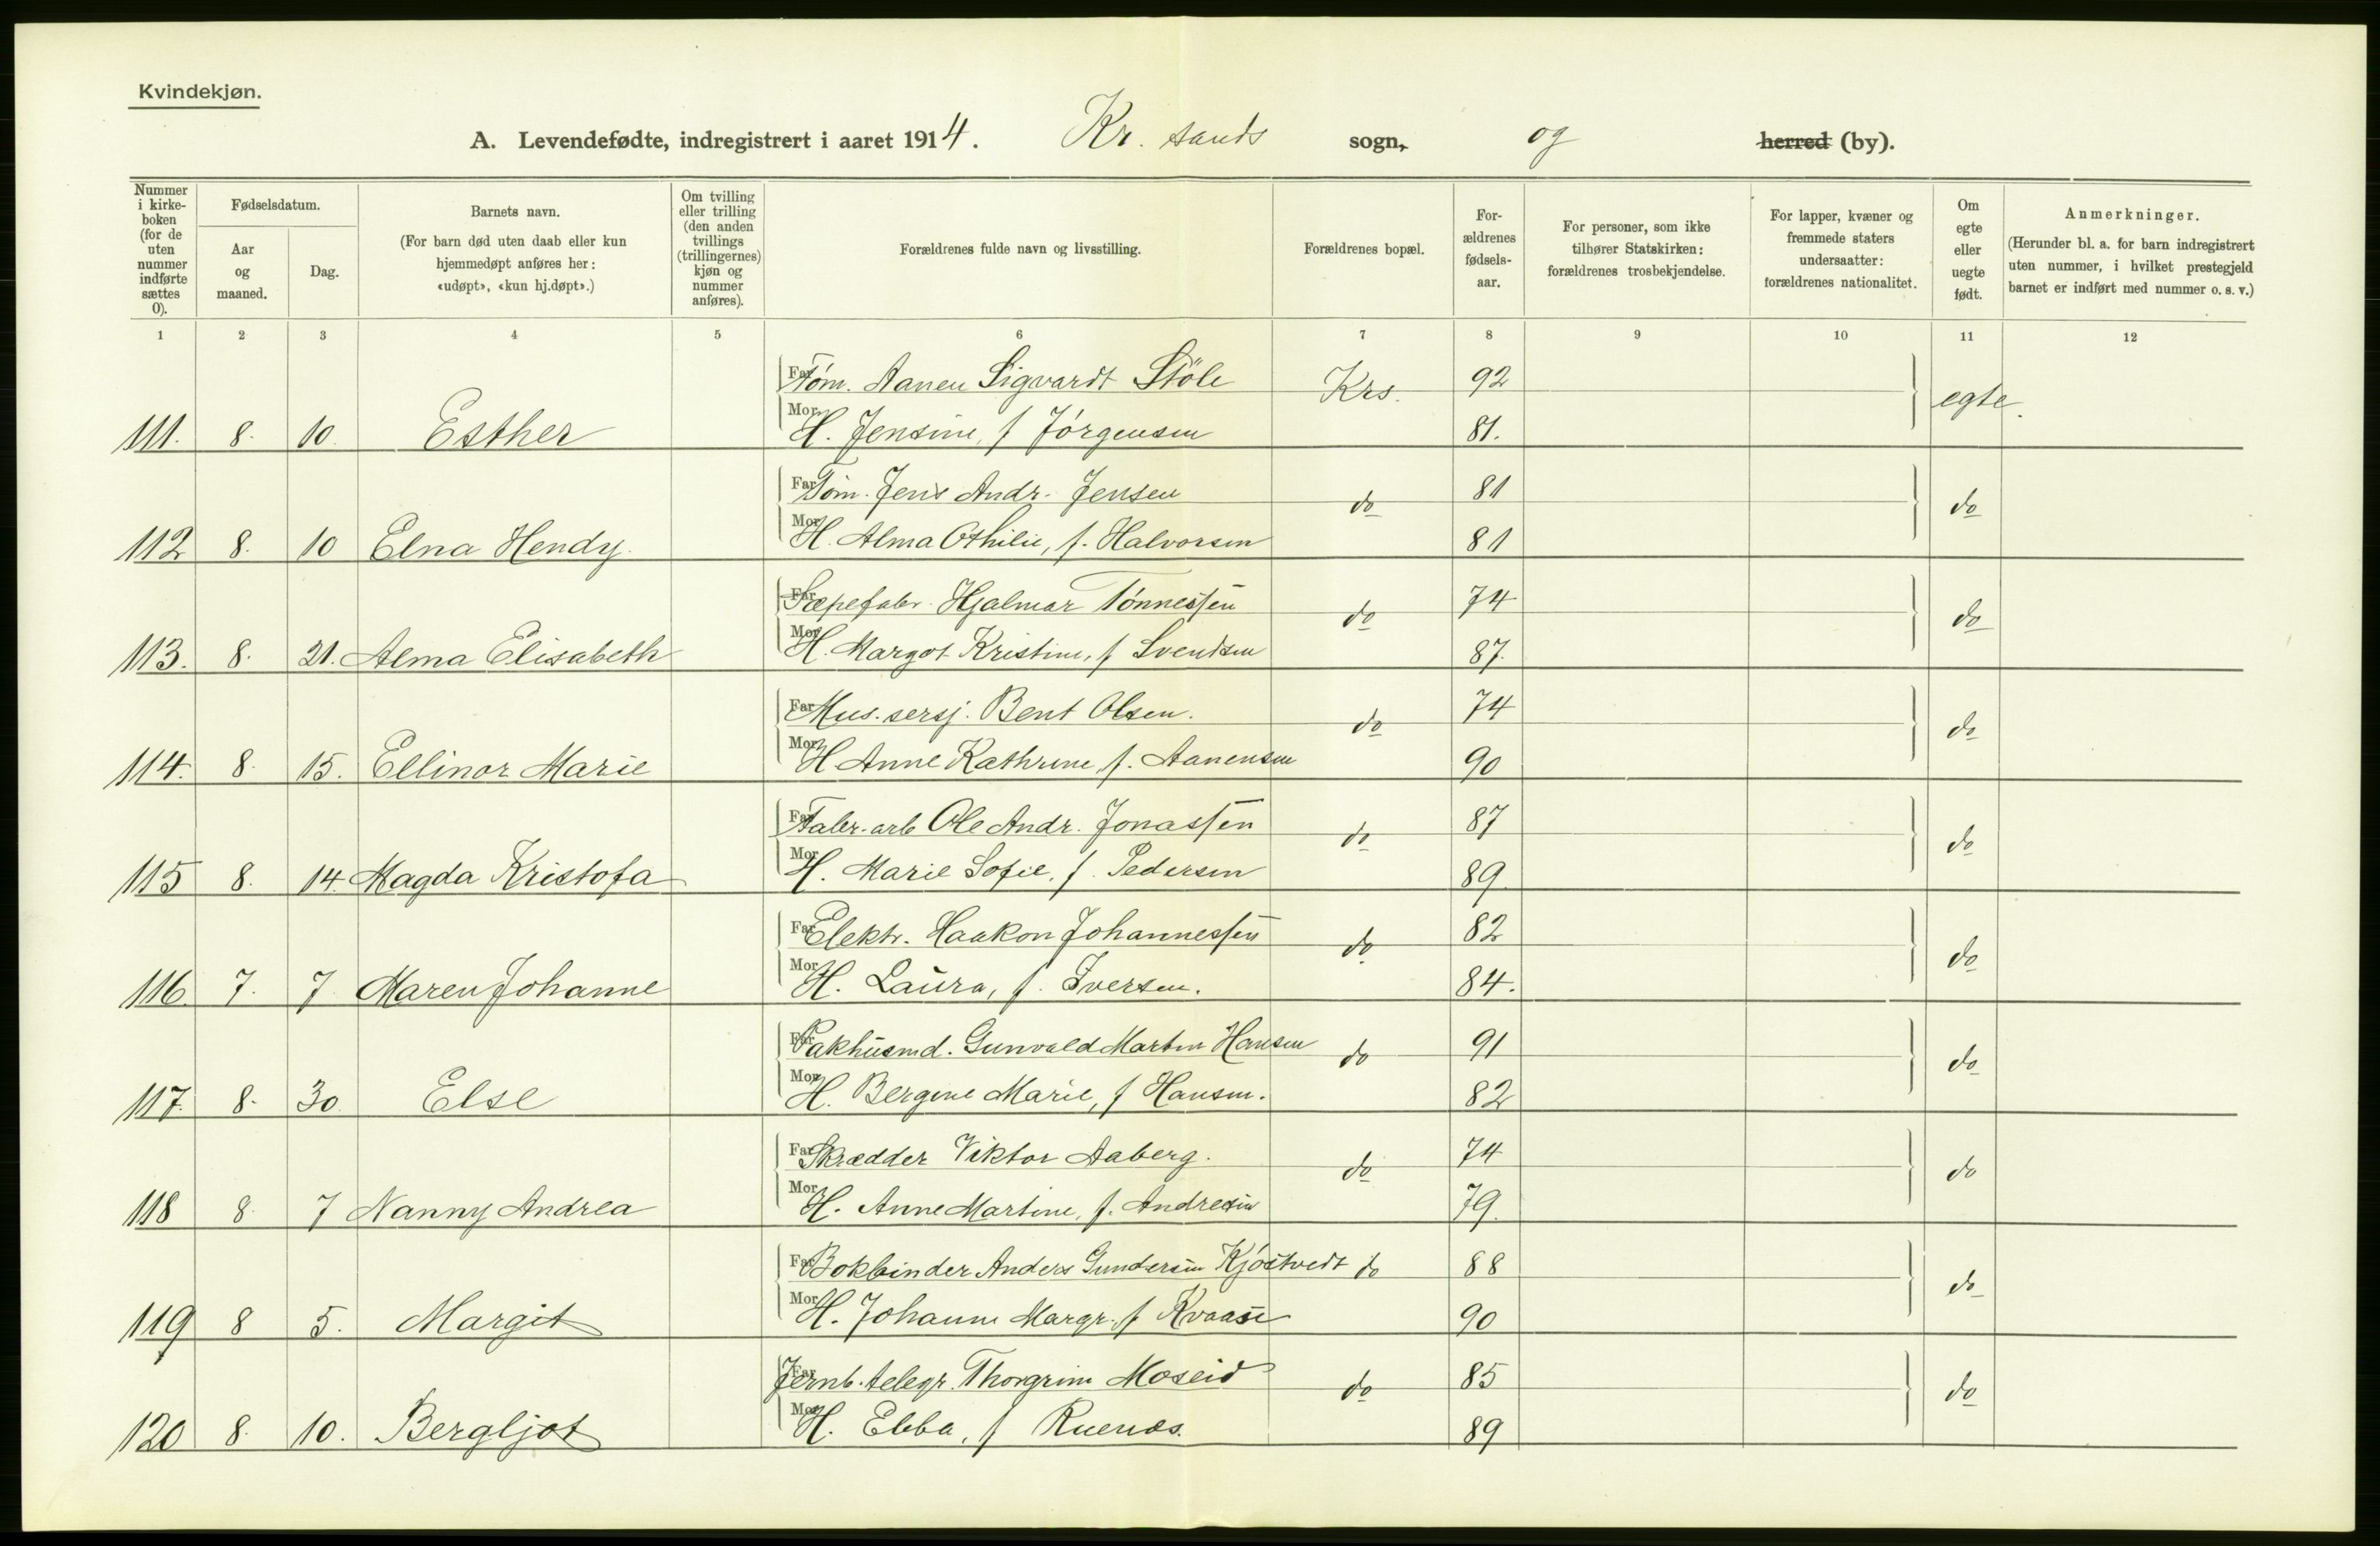 Kvindekjøn.
A. Levendefødte, indregistrert i aaret 1914. Kr. sands sogn, og herred (by).
Nummer i kirke-boken (for de uten nummer indførte sættes 0).
Fødselsdatum.
Aar og maaned.
Dag.
Barnets navn.
(For barn død uten daab eller kun hjemmedøpt anføres her: «udøpt», «kun hj.døpt».)
Om tvilling eller trilling (den anden tvillings (trillingernes) kjøn og nummer anføres).
Forældrenes fulde navn og livsstilling.
Forældrenes bopæl.
For-ældrenes fødsels-aar.
For personer, som ikke tilhører Statskirken: forældrenes trosbekjendelse.
For lapper, kvæner og fremmede staters undersaatter: forældrenes nationalitet.
Om egte eller uegte født.
Anmerkninger.
(Herunder bl. a. for barn indregistrert uten nummer, i hvilket prestegjeld barnet er indført med nummer o. s. v.)
1 2 3 4 5 6 7 8 9 10 11 12
Far Tøm. Aanen Sigvardt Støle Krs. 92 egte.
111. 8. 10. Esther Mor H. Jensine, f Jørgensen 81.
Far Tøm. Jens Andr. Jensen do 81 do
112 8. 10 Elna Hendy. Mor H. Alma Othilie, f. Halvorsen 81
Far Sæpefabr. Hjalmar Tønnessen do 74 do
113. 8. 21. Alma Elisabeth Mor H. Margot Kristine, f Svendsen 87.
Far Mus. sersj. Bent Olsen. do 74 do
114. 8. 15. Ellinor Marie Mor H Anne Kathrine, f. Aanensen 90
Far Fabr. arb Ole Andr. Jonassen do 87 do
115 8. 14. Magda Kristofa Mor H. Marie Sofie, f. Pedersen 89
Far Elektr. Haakon Johannessen do 82 do
116. 7. 7 Maren Johanne Mor H. Laura, f. Iversen. 84.
Far Pakhusmd. Gunvald Martin Hansen do 91 do
117. 8. 30. Else Mor H. Bergine Marie, f Hansen. 82
Far Skrædder Viktor Aaberg. do 74 do
118 8. 7 Nanny Andrea Mor H. Anne Martine, f. Andresen 79.
Far Bokbinder Anders Gundersen Kjøstvedt do 88 do
119 8 5. Margit Mor H. Johanne Margr. f Kvaase 90
Far Jernb. telegr. Thorgrim Moseid do 85 do
120 8. 10. Bergljot Mor H. Ebba, f 89